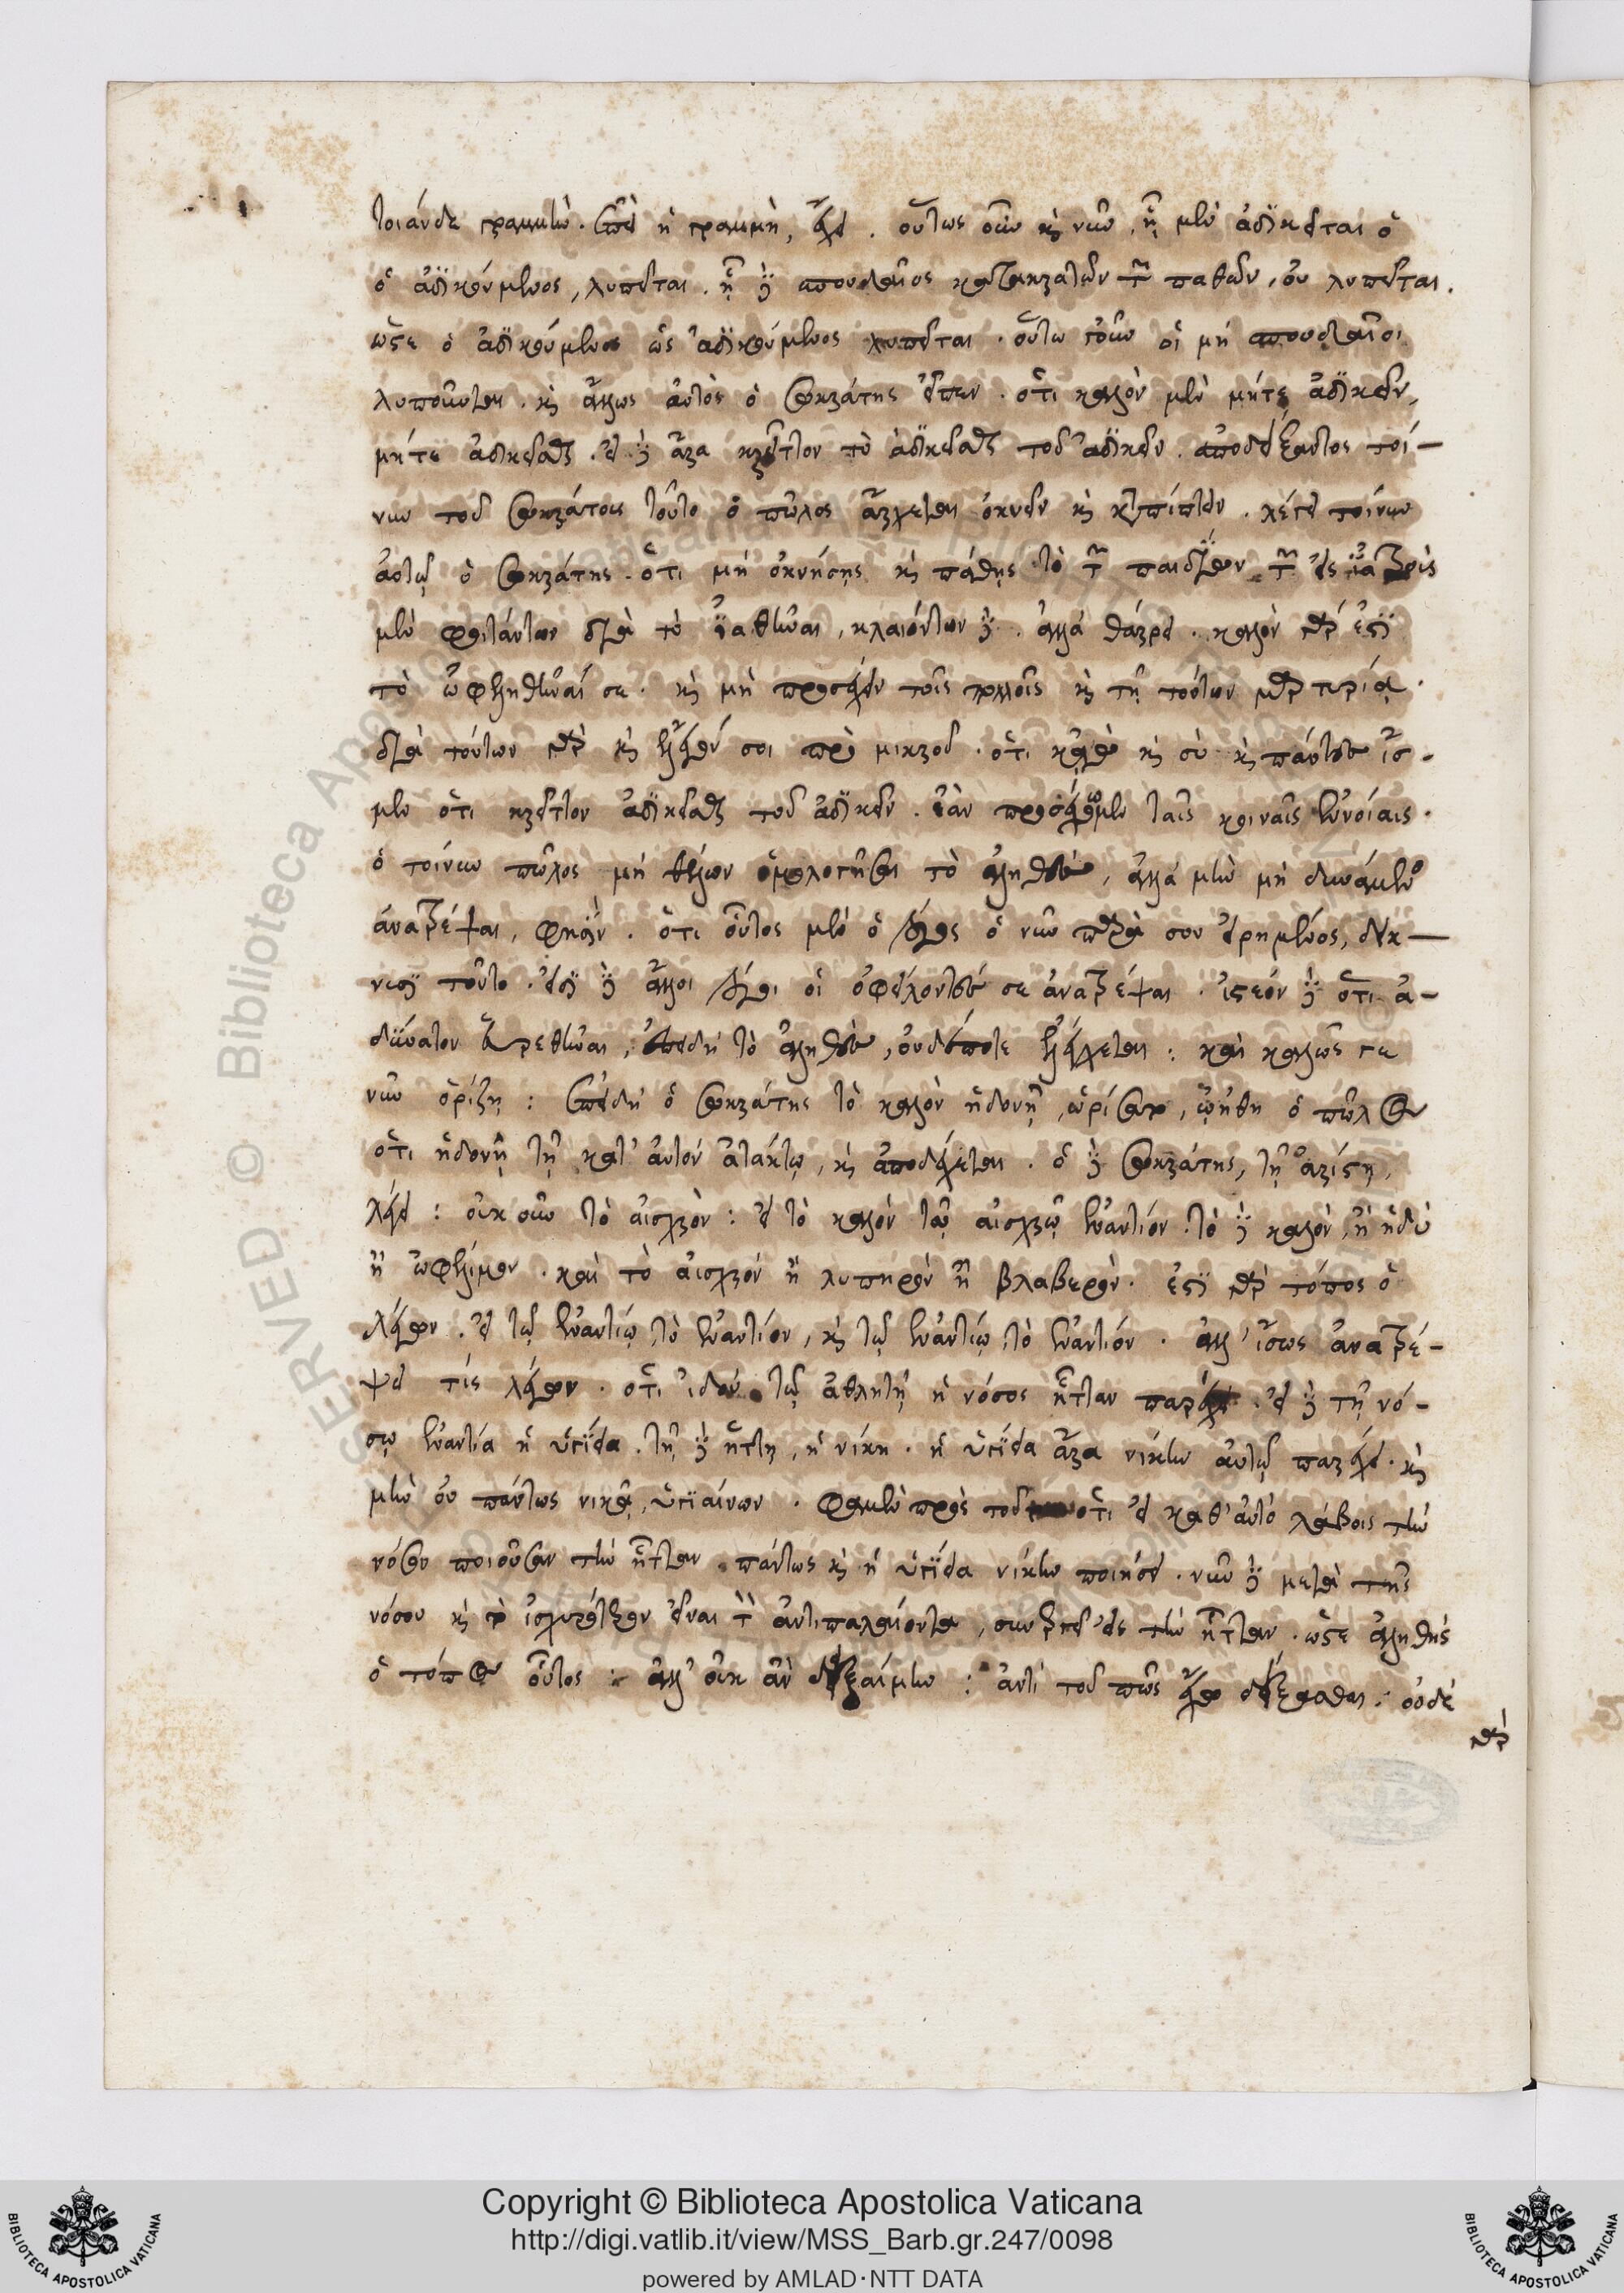 τοιάνδε γραμμὴν. ὥσπερ ἡ γραμμὴ, ἔχει. οὕτως οὖν κỳ νῦν, ᾗ μὲν ἀδικεῖται ὁ
ὁ ἀδικούμενος, λυπεῖται. ᾗ δὲ σπουδαῖος κατακρατῶν τῶν παθῶν, οὐ λυπεῖται.
ὥστε ὁ ἀδικούμενος ὡς ἀδικούμενος λυπεῖται. οὕτω γοῦν οἱ μὴ σπουδαῖοι
λυποῦνται. κỳ ἄλλως αὐτὸς ὁ σωκράτης εἶπεν. ὅτι καλὸν μὲν μήτε ἀδικεῖν,
μήτε ἀδικεῖσθαι. εἰ δὲ ἄρα κρεῖττον τὸ ἀδικεῖσθαι τοῦ ἀδικεῖν. ἀποδείξαντος τοί-
νυν τοῦ σωκράτους τοῦτο ὁ πῶλος ἄρχεται ὀκνεῖν κỳ καταπίπτειν. λέγει τοίνυν
αὐτῷ ὁ σωκράτης. ὅτι μὴ ὀκνήσῃς κỳ πάθῃς τὸ τῶν παιδίων τῶν εἰς ἰατροὺς
μὲν φοιτώντων διὰ τὸ ἰαθῆναι, κλαιόντων δὲ. ἀλλὰ θάρρει. καλὸν γάρ ἐστι
τὸ ὠφεληθῆναί σε. κỳ μὴ προσέχειν τοῖς πολλοῖς κỳ τῇ τούτων μαρτυρίᾳ.
διὰ τούτων γὰρ κỳ ἔλεγόν σοι πρὸ μικροῦ. ὅτι κἀγὼ κỳ σὺ κỳ πάντες ἴσ-
μεν ὅτι κρεῖττον ἀδικεῖσθαι τοῦ ἀδικεῖν. ἐὰν προσέχωμεν ταῖς κοιναῖς ἐννοίαις.
ὁ τοίνυν πῶλος μὴ θέλων ὁμολογῆσαι τὸ ἀληθὲς, ἀλλὰ μὴν μὴ δυνάμενος
ἀνατρέψαι, φησὶν. ὅτι οὗτος μὲν ὁ λόγος ὁ νῦν παρά σου εἰρημένος, δεί-
κνυσι τοῦτο. εἰσὶ δὲ ἄλλοι λόγοι οἱ ὀφείλοντές σε ἀνατρέψαι. ἰστέον δὲ ὅτι ἀ-
δύνατον εὑρεθῆναι, ἐπειδὴ τὸ ἀληθὲς, οὐδέποτε ἐλέγχεται: καὶ καλῶς γε
νῦν ὁρίζῃ: ἐπειδὴ ὁ σωκράτης τὸ καλὸν ἡδονῇ, ὡρίσατο, ᾠήθη ὁ πῶλος
ὅτι ἡδονῇ τῇ κατ' αὐτὸν ἀτάκτῳ, κỳ ἀποδέχεται. ὁ δὲ σωκράτης, τῇ ἀρίστῃ,
λέγει: οὐκοῦν τὸ αἰσχρὸν: εἰ τὸ καλὸν τῷ αἰσχρῷ ἐναντίον. τὸ δὲ καλὸν, ἢ ἡδὺ
ἢ ὠφέλιμον. καὶ τὸ αἰσχρόν ἢ λυπηρὸν ἢ βλαβερὸν. ἐστὶ γὰρ τόπος ὁ
λέγων. εἰ τῷ ἐναντίῳ τὸ ἐναντίον, κỳ τῷ ἐναντίῳ τὸ ἐναντίον. ἀλλ' ἴσως ἀνατρέ-
ψει τίς λέγων. ὅτι ἰδού τῷ ἀθλητῇ ἡ νόσος ἧτταν παρέχει. εἰ δὲ τῇ νό-
σῳ ἐναντία ἡ ὑγίεια. τῇ δὲ ἥττῃ, ἡ νίκη. ἡ ὑγίεια ἄρα νίκην αὐτῷ παρέχει. κỳ
μὴν οὐ πάντως νικᾷ, ὑγιαίνων. φαμὲν πρὸς τοῦτο ὅτι εἰ καθ' αὑτὸ λάβοις τὴν
νόσον ποιοῦσαν τὴν ἧτταν πάντως κỳ ἡ ὑγίεια νίκην ποιήσει. νῦν δὲ μετὰ τῆς
νόσου κỳ τὸ ἰσχυρότερον εἶναι τὸν ἀντιπαλαίοντα, συντρέχει εἰς τὴν ἧτταν. ὥστε ἀληθής
ὁ τόπος οὗτος: ἀλλ' οὐκ ἂν δεξαίμην: ἀντὶ τοῦ πῶς ἔχω δέξασθαι. οὐδὲ
γὰρ
Copyright © Biblioteca Apostolica Vaticana
http://digi.vatlib.it/view/MSS_Barb.gr.247/0098
powered by AMLAD·NTT DATA